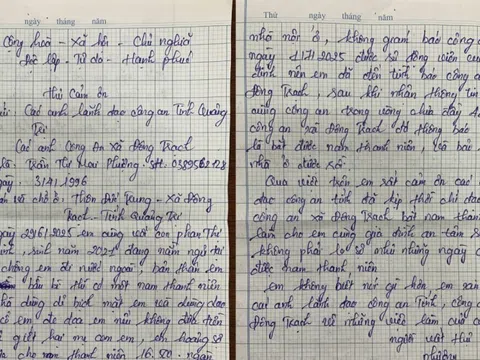 ngày tháng năm
Cộng hoà - Xã hội - Chủ nghĩa
Độc lập - Tự do - Hạnh phúc
Thư cảm ơn
Các anh lãnh đạo công an Tỉnh Quảng
Trị
Các anh Công An Xã Đông Trạch
là: Trần Thị Mai Phương. SĐT. 0389562128
3/4/1996
chỗ ở: Thôn Đức Trung - Xã Đông
Trạch - Tỉnh Quảng Trị
29/6/2025 em cùng với con phan Thế
sinh năm 2021 đang nằm ngủ tại
chồng em đi nước ngoài, bản thân em
bầu bí thì có một nam thanh niên
dùng dao bịt mặt em và dùng dao
cổ em đe doạ em nếu không đưa tiền
giết hai mẹ con em, em hoảng sợ
cho nam thanh niên 16.500 ngàn
Thứ ngày tháng năm
nhà nôn ở, không giám báo công an
ngày 1/7/2025 được sự động viên của
đình nên em đã đến trình báo công a
Đông Trạch, sau khi nhận thông tin
công an trong vòng chưa đầy
công an xã Đông Trạch đã thông báo
là bắt được nam thanh niên, và báo
nhà ở được rồi.
Qua việt trên em rất cảm ơn các
đạo công an tỉnh đã kịp thời chỉ đạo
công an xã Đông Trạch bắt nam thanh
làm cho em cùng gia đình an tâm
không phải lo sợ như những ngày
được nam thanh niên
em không biết nói gì hơn, em xin
các anh lãnh đạo công an Tỉnh, công
Đông Trạch về những việc làm của các
người viết Thư